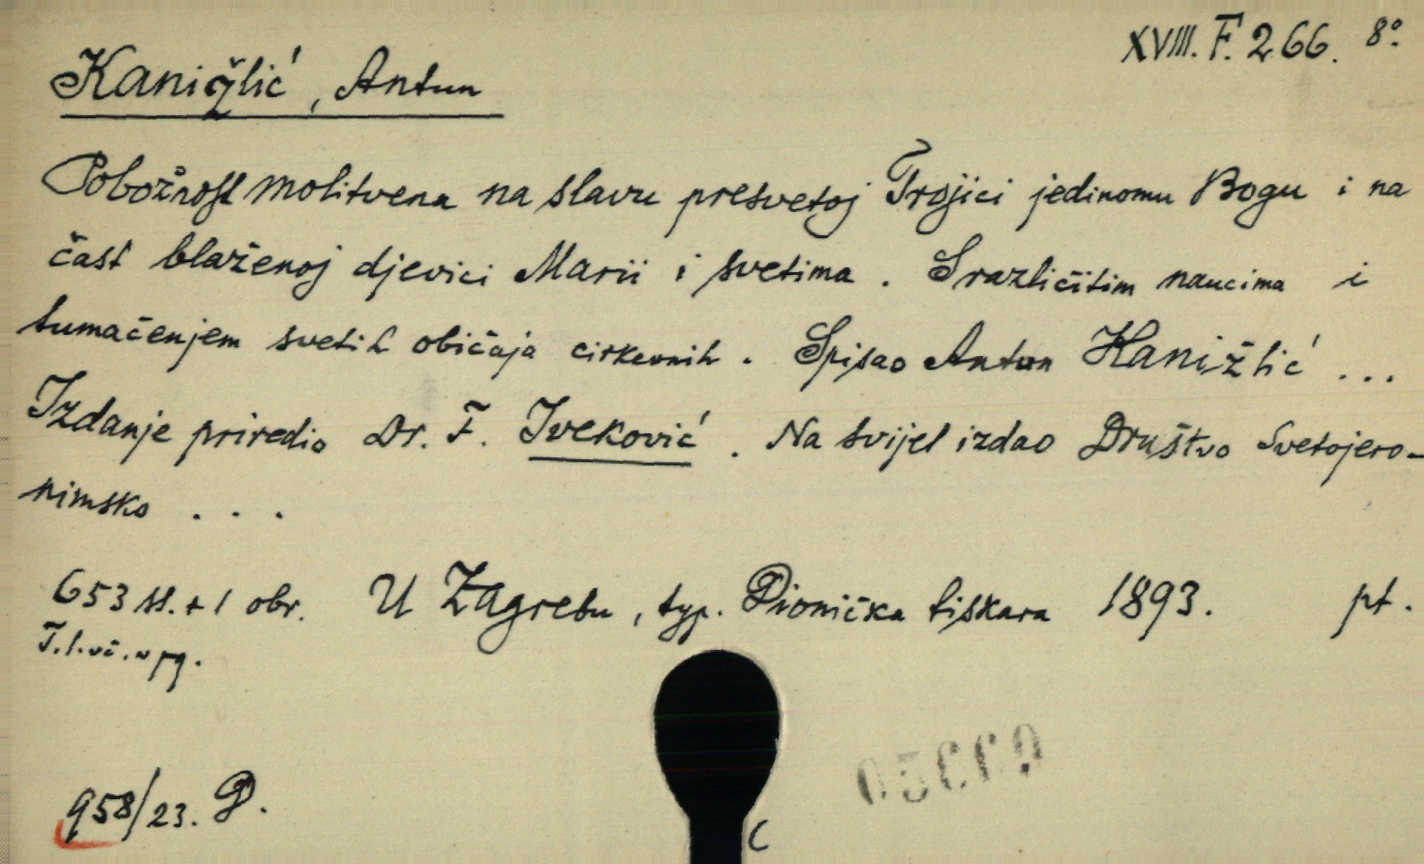 XVIII. F. 266. 8°.
Kanižlić, Antun
Pobožnost molitvena na slavu presvetoj Trojici jedinomu Bogu i na
čast blaženoj djevici Marii i svetima. S različitim naucima i
tumačenjem svetih običaja cirkevnih. Spisao Antun Kanižlić ...
Izdanje priredio Dr. F. Iveković. Na svijet izdao Društvo Svetojero-
nimsko ...
653 st. + 1 obr. U Zagrebu, typ. Dionička tiskara 1893. pt.
958/23. D.
C